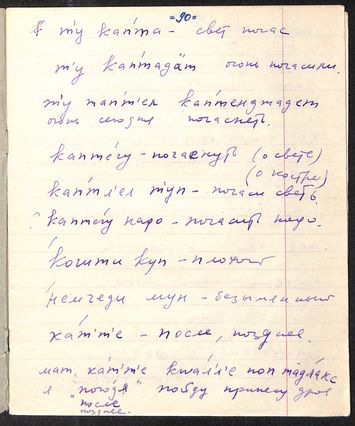 =90=
тӱ капта - свет погас
тӱ каптадӓт огонь погасили.
тӱ тап'т'ел каптенджадет
огонь сегодня погаснет.
каптэ́гу - погаснуть (о свете)
(о костре)
каптл'ел тӱп - погаси свет.
? каптэ́гу надо - погасить надо.
кошти куп - плохой
немчеди мун - безымянный
ка́т'т'е - после, позднее.
мат ка́т'т'е квал'л'е поп тадла́кс
я "погодя" пойду принесу дров
"после
позднее.